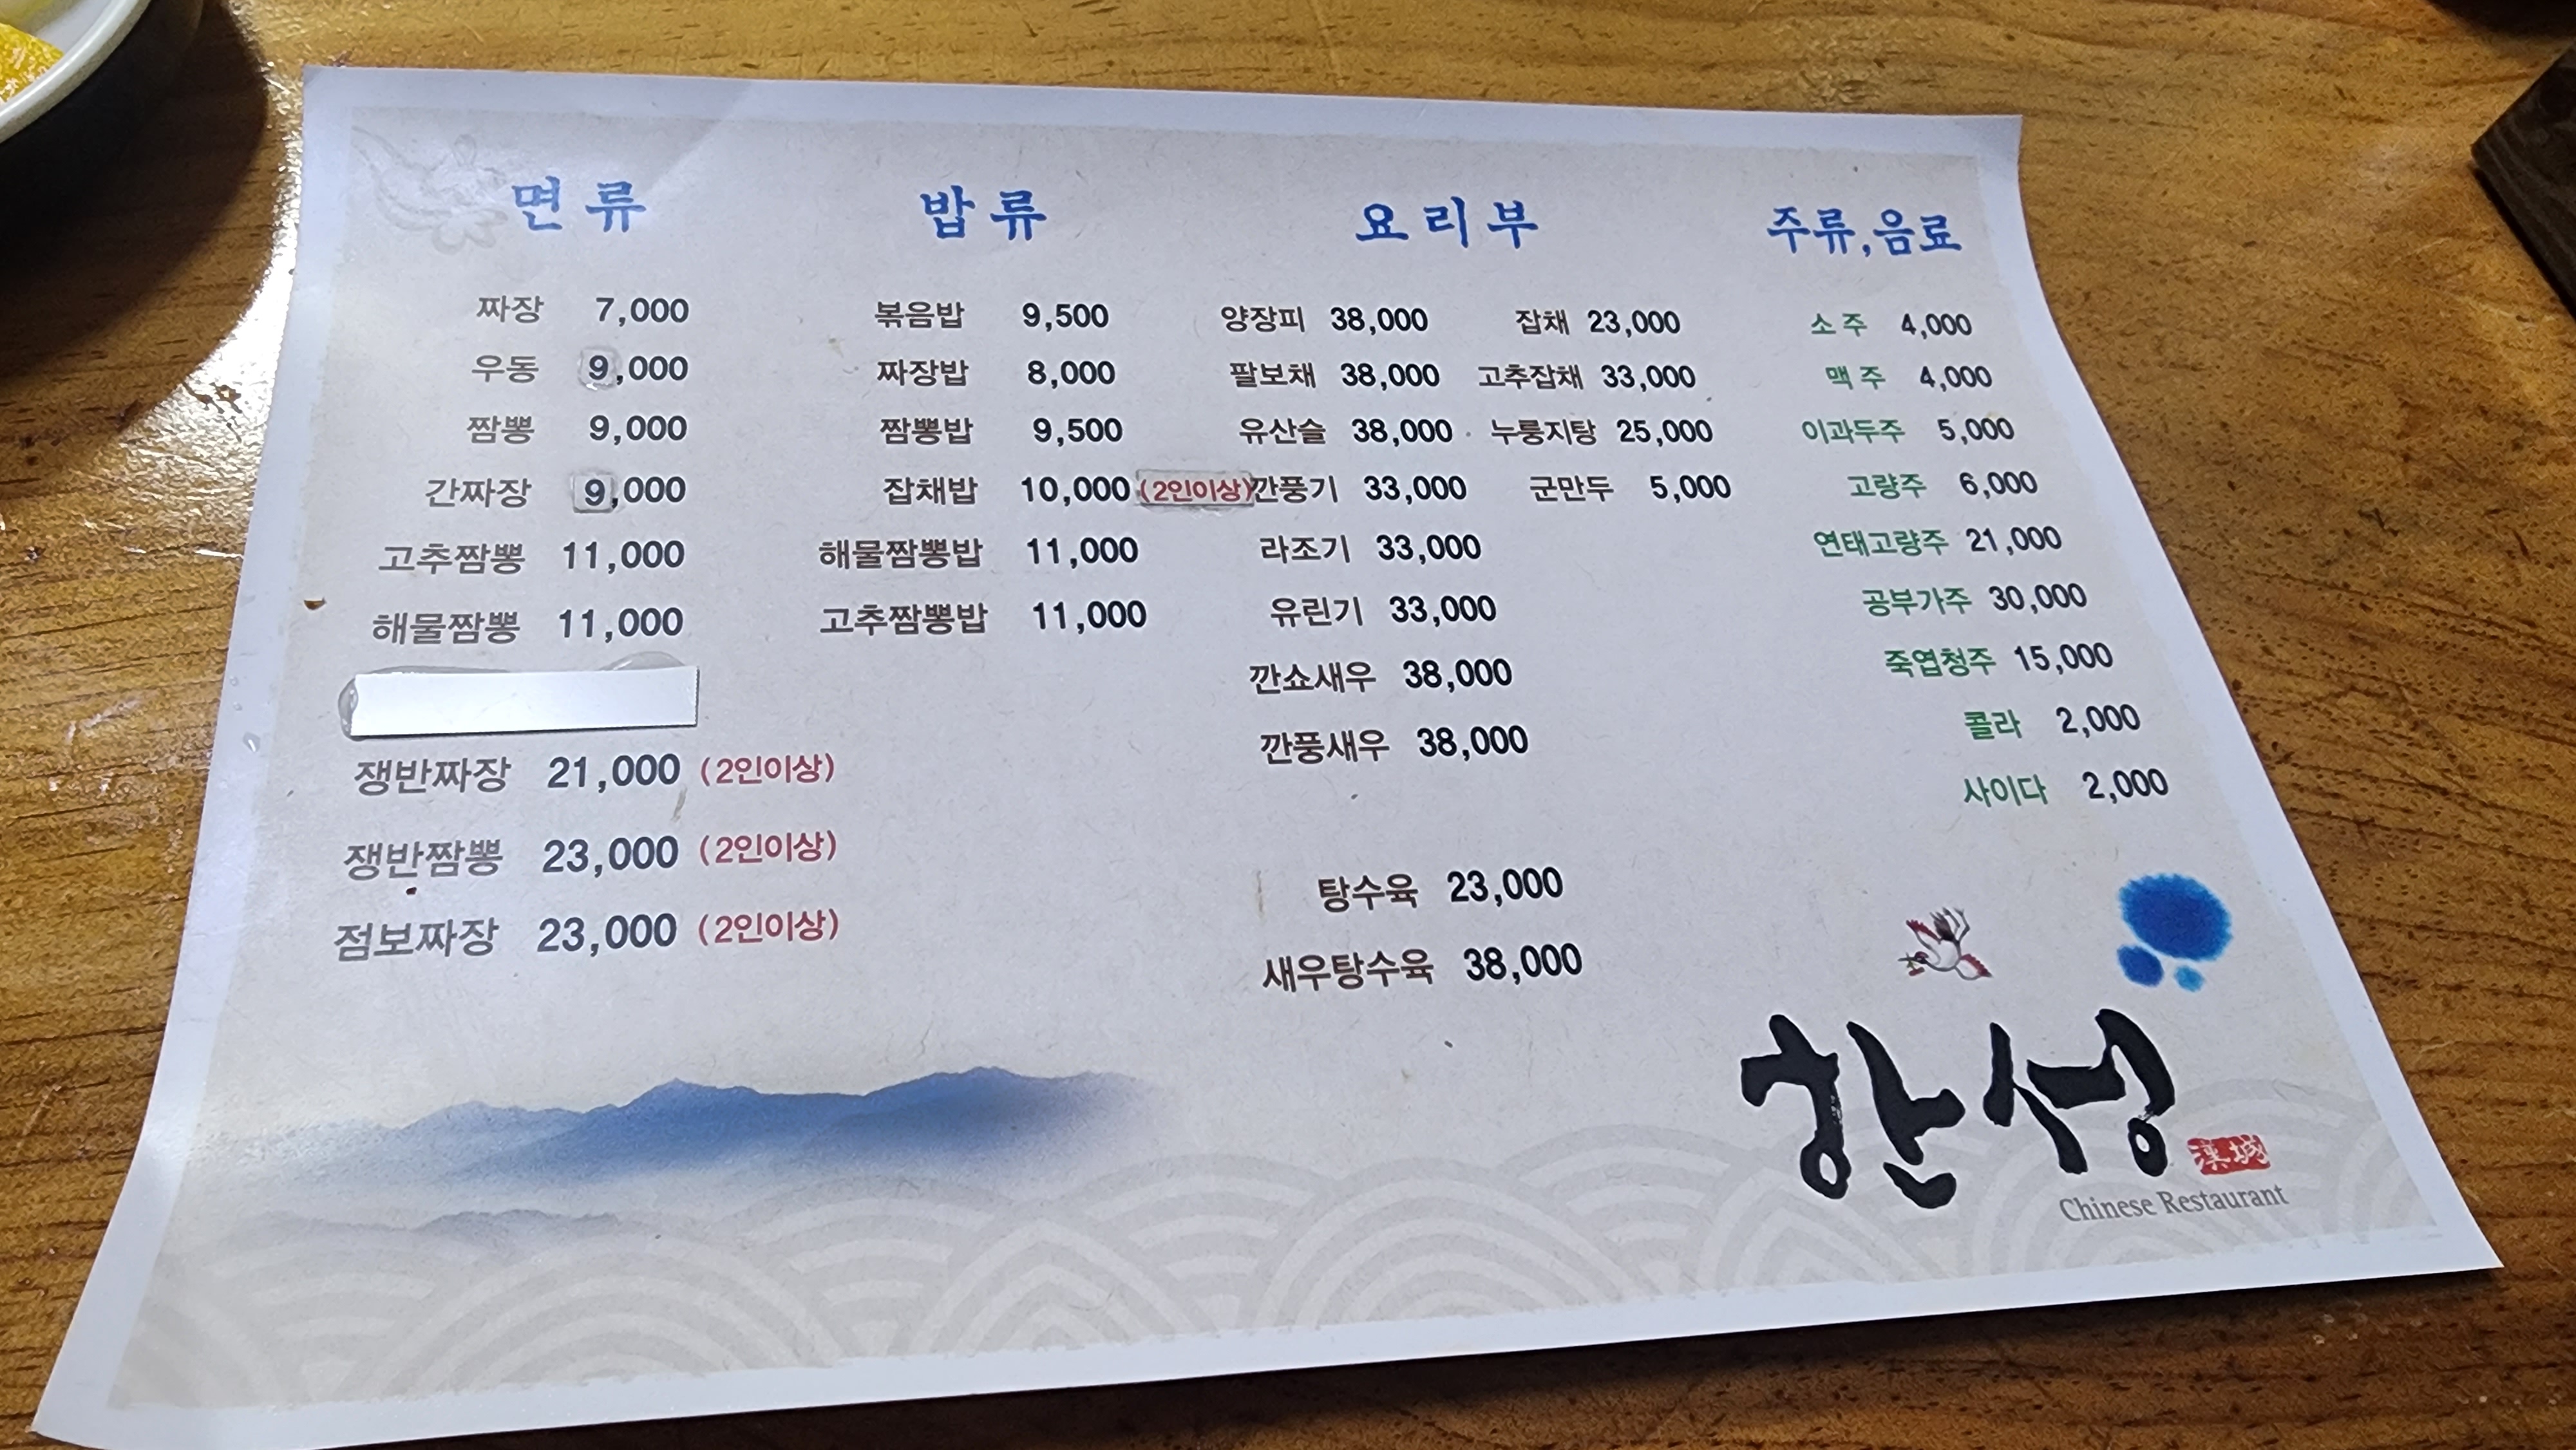 면류
짜장 7,000
우동 9,000
짬뽕 9,000
간짜장 9,000
고추짬뽕 11,000
해물짬뽕 11,000
쟁반짜장 21,000 (2인이상)
쟁반짬뽕 23,000 (2인이상)
점보짜장 23,000 (2인이상)
밥류
볶음밥 9,500
짜장밥 8,000
짬뽕밥 9,500
잡채밥 10,000 (2인이상)
해물짬뽕밥 11,000
고추짬뽕밥 11,000
요리부
양장피 38,000
팔보채 38,000
유산슬 38,000
깐풍기 33,000
라조기 33,000
유린기 33,000
깐쇼새우 38,000
깐풍새우 38,000
탕수육 23,000
새우탕수육 38,000
잡채 23,000
고추잡채 33,000
누룽지탕 25,000
군만두 5,000
주류,음료
소주 4,000
맥주 4,000
이과두주 5,000
고량주 6,000
연태고량주 21,000
공부가주 30,000
죽엽청주 15,000
콜라 2,000
사이다 2,000
한성
漢城
Chinese Restaurant